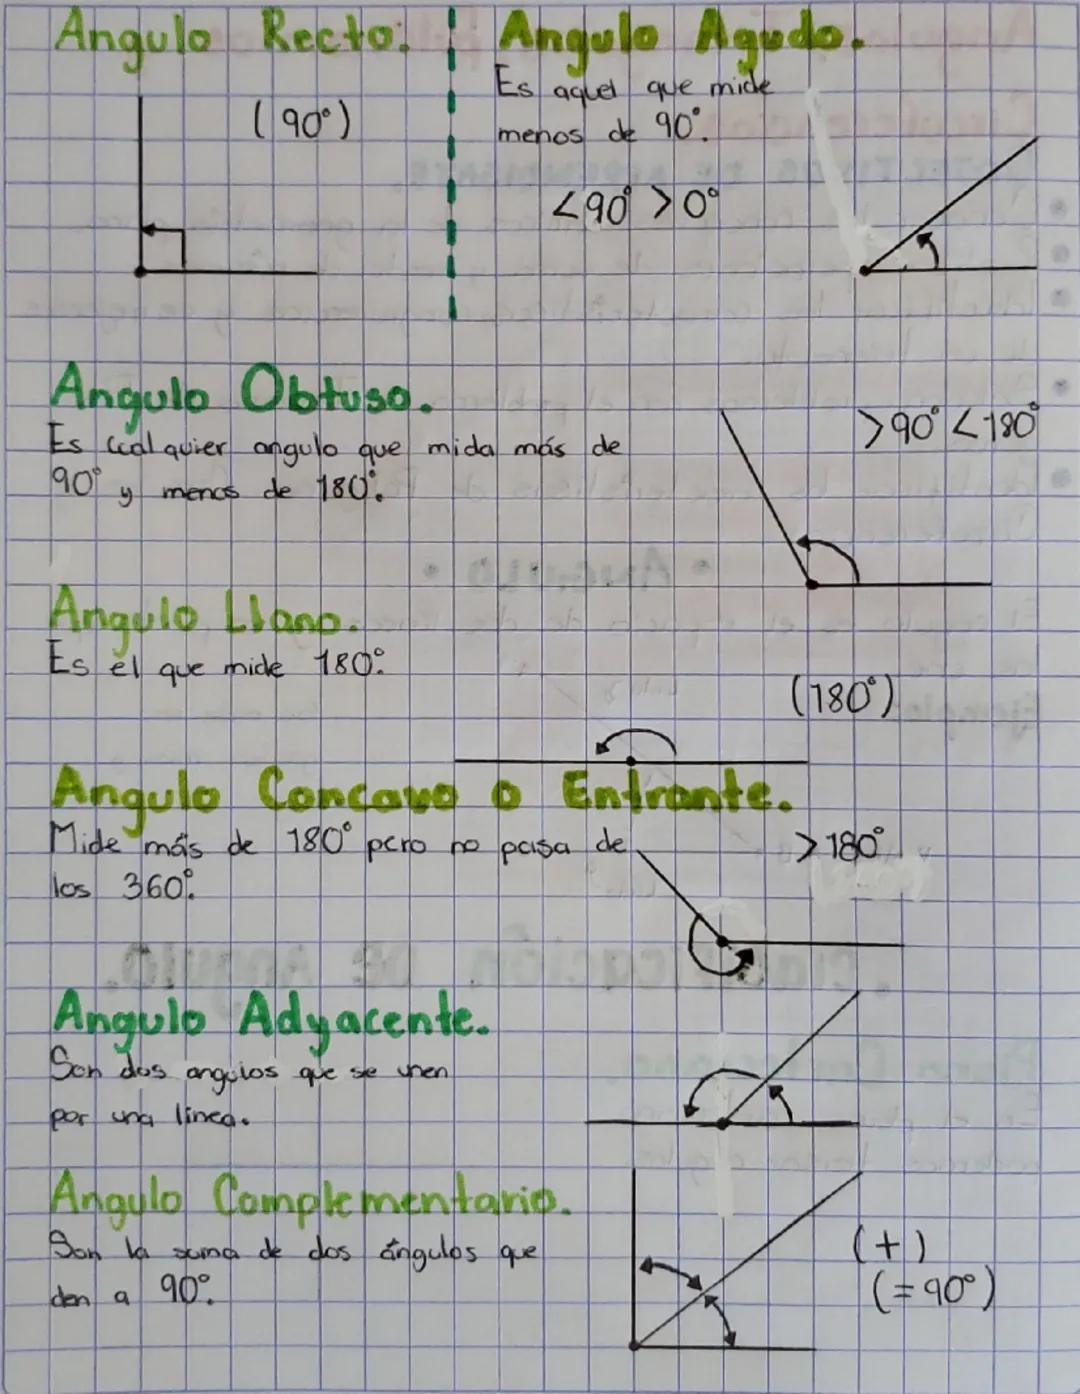 Angulo Recto.
(90°)
Angulo Agudo.
Es aquel que mide
menos de 90°.
<90° >0°
Angulo Obtuso.
Es cualquier angulo que mida más de
90° y menos de 180°.
>90° <180°
Angulo Llano.
Es el que mide 180°.
(180°)
Angulo Concavo o Entrante.
Mide más de 180° pero no pasa de
los 360°.
>180°
Angulo Adyacente.
Son dos angulos que se unen
por una linea.
Angulo Complementario.
Son la suma de dos ángulos que
den a 90°.
(+)
(=90°)